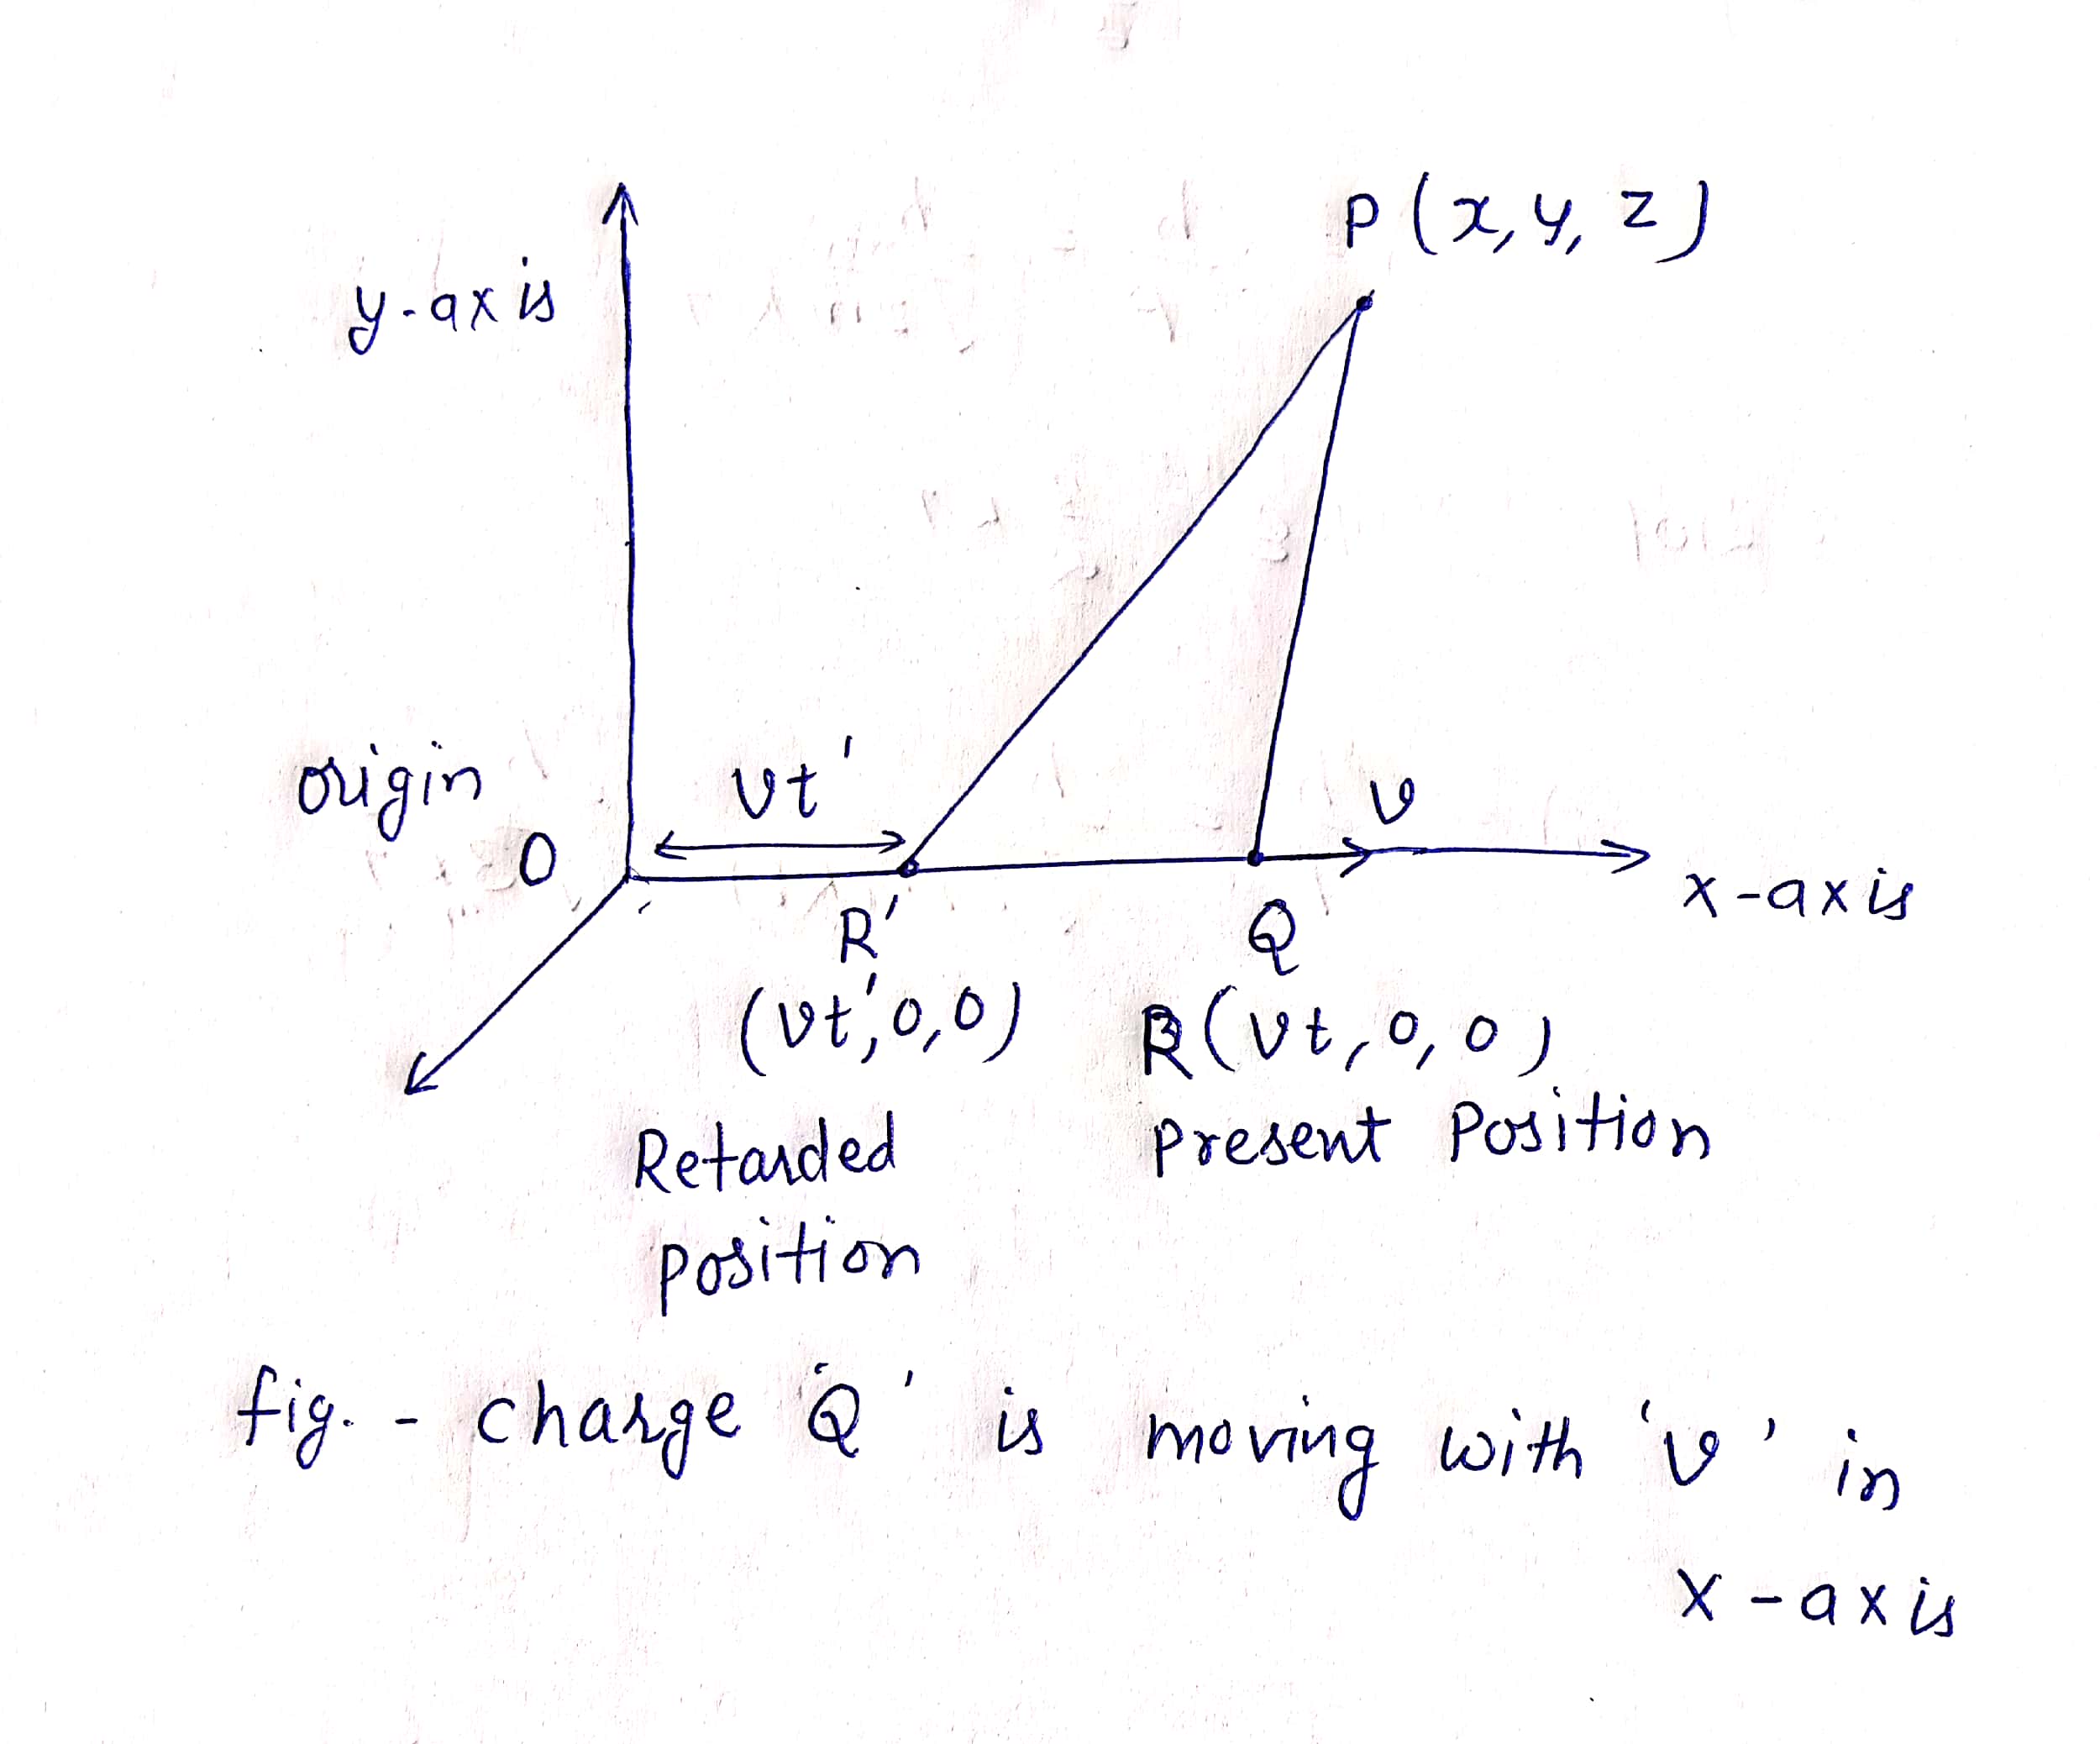 P (x, y, z)
y-axis
origin
O
vt'
v
x-axis
R'
Q
(vt', 0, 0)
R (vt, 0, 0)
Retarded
position
Present Position
fig. - charge 'Q' is moving with 'v' in
x-axis